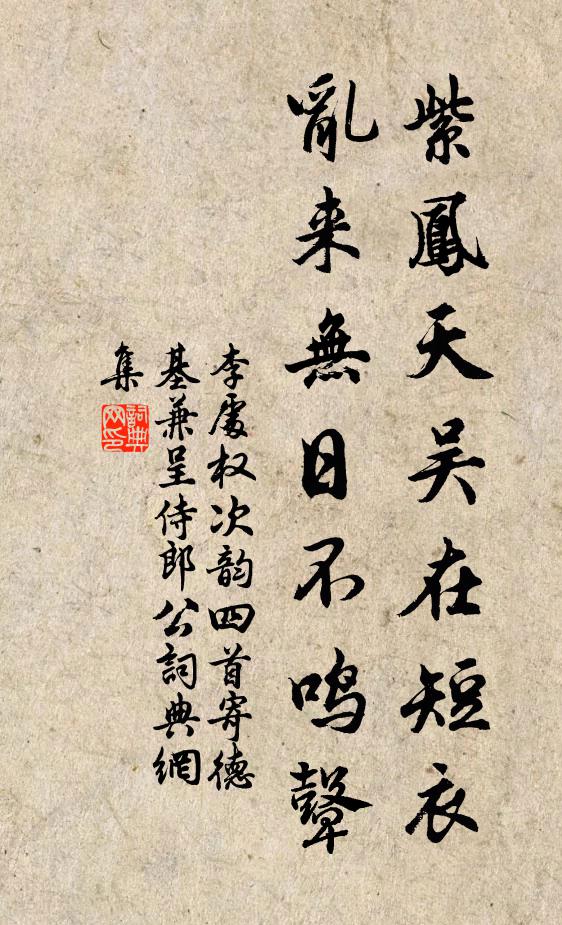 紫鳳天吴在短衣
亂来無日不鳴鼙
李處权次韵四首寄德
基兼呈侍郎公詞典網
集
詞典
网印